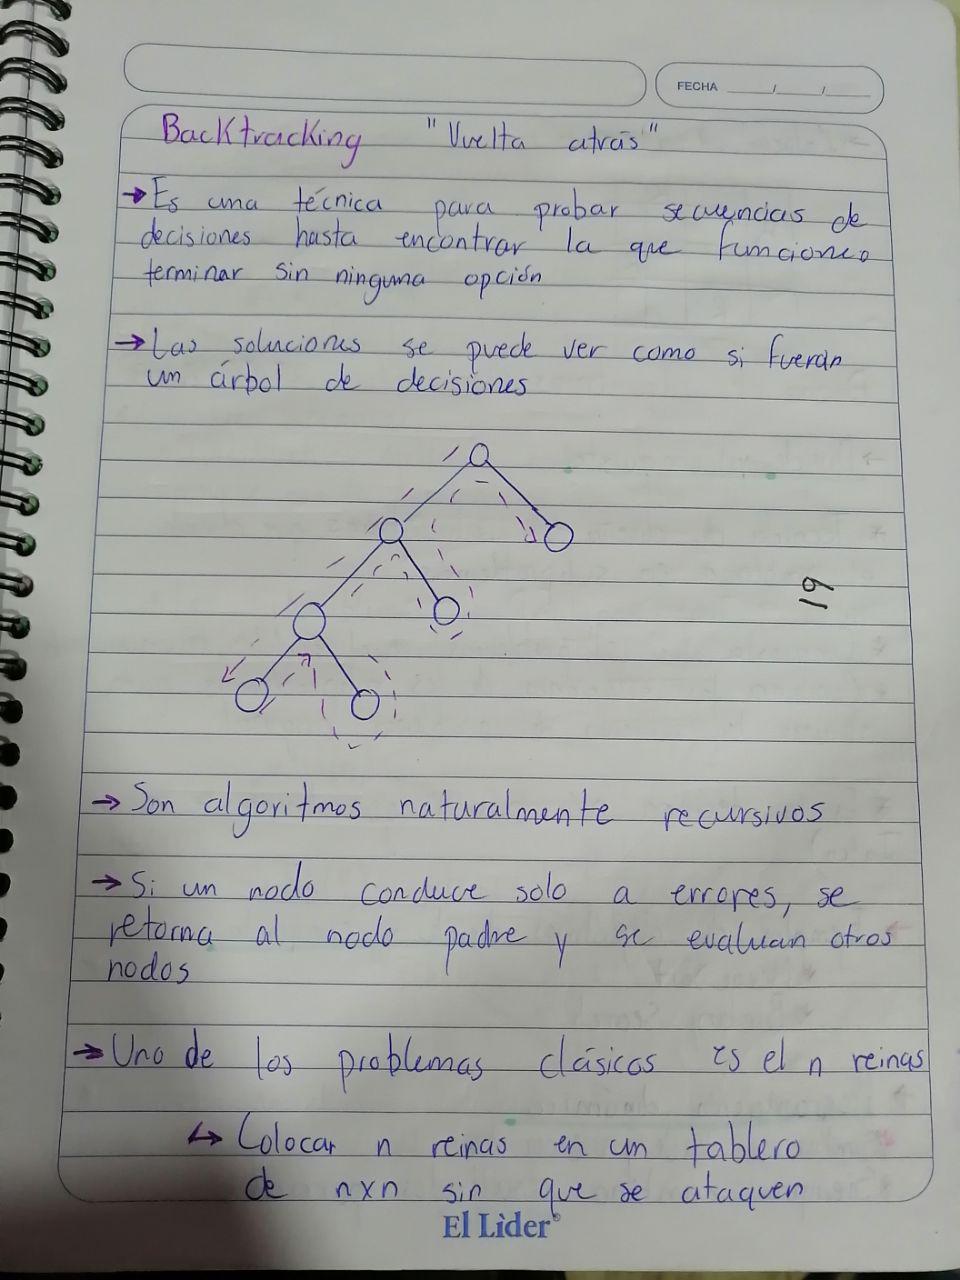 FECHA
Backtracking "Vuelta atrás"
→ Es una técnica para probar secuencias de
decisiones hasta encontrar la que funcione o
terminar sin ninguna opción
→ Las soluciones se puede ver como si fueran
un árbol de decisiones
19
→ Son algoritmos naturalmente recursivos
→ Si un nodo conduce solo a errores, se
retorna al nodo padre y se evaluan otros
nodos
→ Uno de los problemas clásicos es el n reinas
↳ Colocar n reinas en un tablero
de nxn sin que se ataquen
El Lìder®